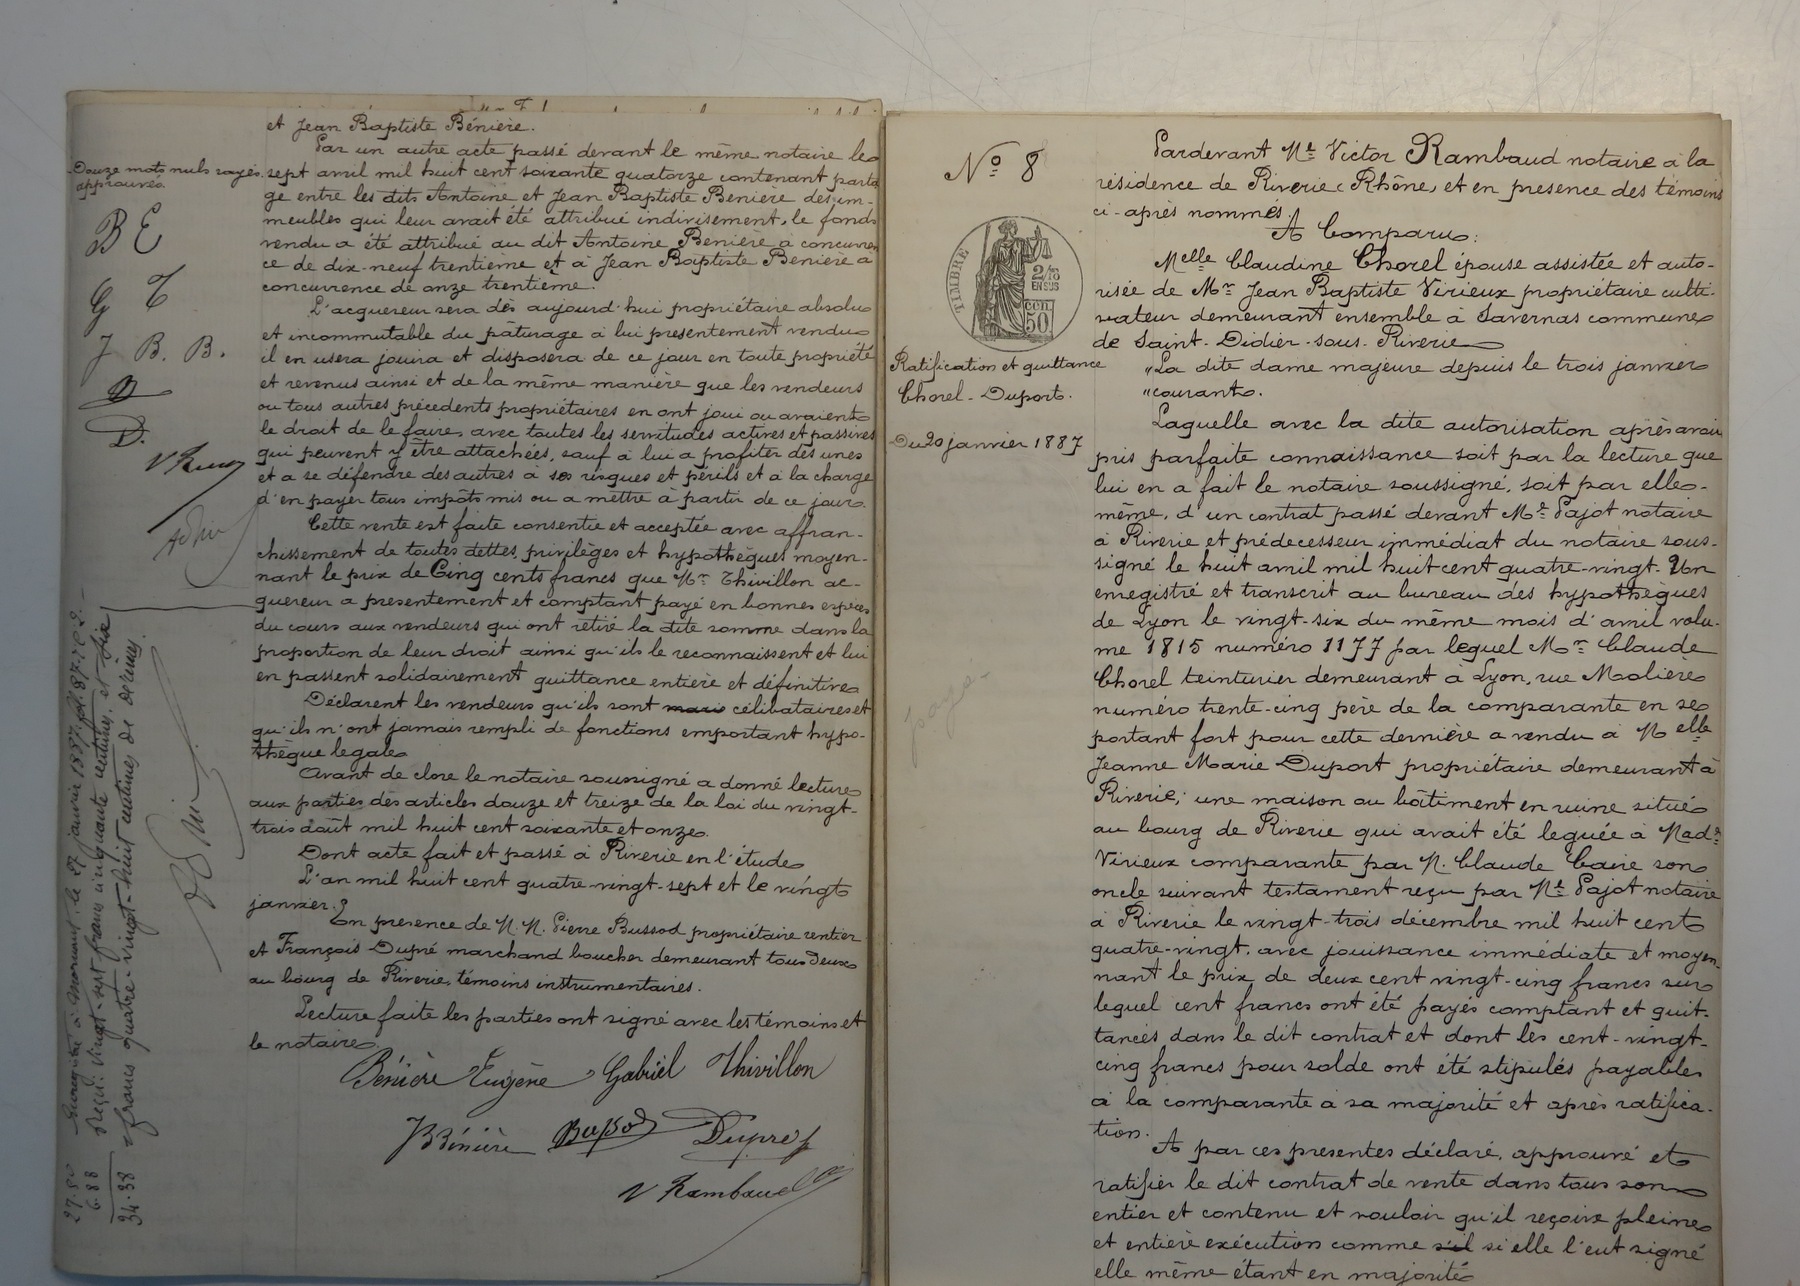 et Jean Baptiste Bénière.
Par un autre acte passé devant le même notaire le
sept avril mil huit cent soixante quatorze contenant parta
ge entre les dits Antoine et Jean Baptiste Benière des im-
meubles qui leur avait été attribué indivisement, le fonds
vendu a été attribué au dit Antoine Benière à concurren
ce de dix-neuf trentième et à Jean Baptiste Benière à
concurrence de onze trentième.
L'acquereur sera dès aujourd'hui propriétaire absolu
et incommutable du pâturage à lui presentement vendu
il en usera jouira et disposera de ce jour en toute propriété
et revenus ainsi et de la même manière que les vendeurs
ou tous autres précedents propriétaires en ont joui ou avaient
le droit de le faire, avec toutes les servitudes actives et passives
qui peuvent y être attachées, sauf à lui a profiter des unes
et a se défendre des autres à ses risques et périls et à la charge
d'en payer tous impôts mis ou a mettre à partir de ce jour.
Cette vente est faite consentie et acceptée avec affran-
chissement de toutes dettes, privilèges et hypothèques moyen-
nant le prix de Cinq cents francs que Mr Thivillon ac-
quereur a presentement et comptant payé en bonnes espèces
du cours aux vendeurs qui ont retiré la dite somme dans la
proportion de leur droit ainsi qu'ils le reconnaissent et lui
en passent solidairement quittance entière et définitive
Déclarent les vendeurs qu'ils sont maris célibataires et
qu'ils n'ont jamais rempli de fonctions emportant hypo-
thèque legale
Avant de clore le notaire soussigné a donné lecture
aux parties des articles douze et treize de la loi du vingt-
trois août mil huit cent soixante et onze.
Dont acte fait et passé à Riverie en l'étude
L'an mil huit cent quatre-vingt-sept et le vingt
janvier.
En presence de M. M. Pierre Bussod propriétaire rentier
et François Dupré marchand boucher demeurant tous deux
au bourg de Riverie, témoins instrumentaires.
Lecture faite les parties ont signé avec les témoins et
le notaire.
Bénière Eugène Gabriel Thivillon
JBBénière Bussod Dupré
V Rambaud
Douze mots nuls rayés
approuvés
B E
G T
J B. B.
D.
Enregistré à Mornant, le 27 janvier 1887, fol. 87
Reçu: vingt-sept francs cinquante centimes, et six
francs quatre-vingt-huit centimes de décimes.
27.50
6.88
34.38
No 8
TIMBRE
2/10
EN SUS
50 CEN
Ratification et quittance
Chorel - Duport.
Du 20 janvier 1887
Pardevant Me Victor Rambaud notaire à la
résidence de Riverie (Rhône) et en presence des témoins
ci-après nommés.
A Comparu:
Melle Claudine Chorel épouse assistée et auto-
risée de Mr Jean Baptiste Virieux propriétaire culti-
vateur demeurant ensemble à Savernas commune
de Saint-Didier-sous-Riverie
"La dite dame majeure depuis le trois janvier
"courant.
Laquelle avec la dite autorisation après avoir
pris parfaite connaissance soit par la lecture que
lui en a fait le notaire soussigné, soit par elle-
même, d'un contrat passé devant Me Pajot notaire
à Riverie et prédecesseur immédiat du notaire sous-
signé le huit avril mil huit cent quatre-vingt-Un
enregistré et transcrit au bureau des hypothèques
de Lyon le vingt-six du même mois d'avril volu-
me 1815 numéro 1177 par lequel Mr Claude
Chorel teinturier demeurant à Lyon, rue Molière
numéro trente-cinq père de la comparante en se
portant fort pour cette dernière a vendu à Melle
Jeanne Marie Duport propriétaire demeurant à
Riverie, une maison ou bâtiment en ruine situé
au bourg de Riverie qui avait été leguée à Made
Virieux comparante par M. Claude Caire son
oncle suivant testament reçu par Me Pajot notaire
à Riverie le vingt-trois décembre mil huit cent
quatre-vingt, avec jouissance immédiate et moyen-
nant le prix de deux cent vingt-cinq francs sur
lequel cent francs ont été payés comptant et quit-
tancés dans le dit contrat et dont les cent-vingt-
cinq francs pour solde ont été stipulés payables
à la comparante a sa majorité et après ratifica-
tion.
A par ces presentes déclaré, approuvé et
ratifier le dit contrat de vente dans tous son
entier et contenu et vouloir qu'il reçoive pleine
et entière exécution comme s'il si elle l'eut signé
elle même étant en majorité